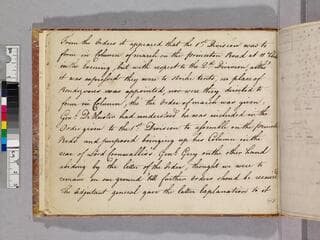 From the Orders it appeared that the 1st Division was to
form in Column of march on the Princeton Road at 11 oClock
in the Evening, but with respect to the 2d Division, altho'
it was expressed they were to strike tents, no place of
Rendezvous was appointed, nor were they directed to
form in Column, tho' the order of march was given.
Genl D. Heister had understood he was included in the
Order given to the 1st Division to assemble on the Princeton
Road and proposed bringing up his Column in the
rear of Lord Cornwallis's. Genl Grey on the other hand
abiding by the letter of the Order, thought we were to
remain on our ground till further orders should be received.
The adjutant general gave the latter Explanation to it